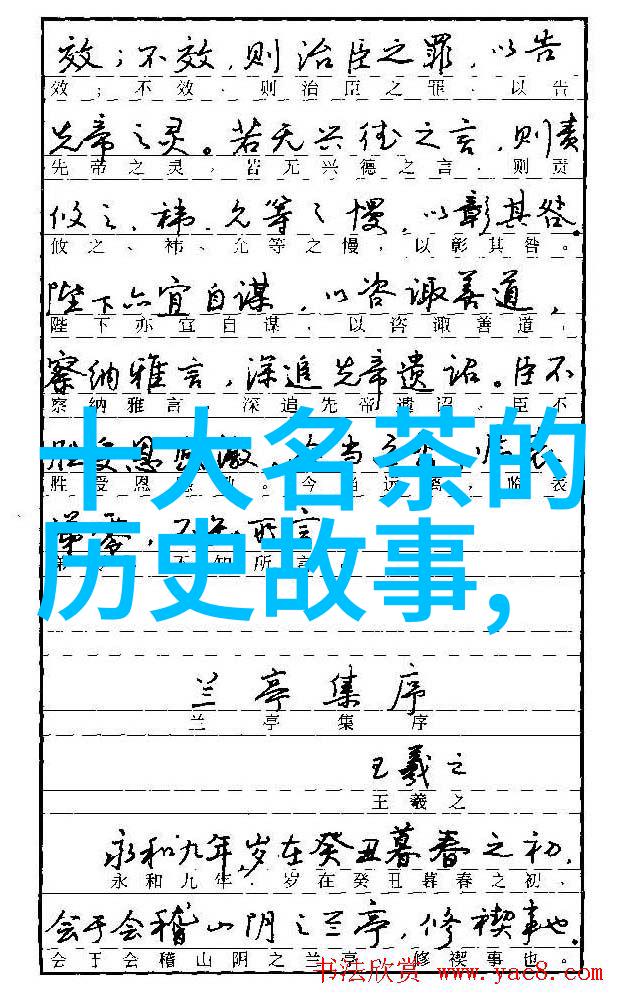 效；不效，则治臣之罪，以告
效；不效、则治臣之罪、以告
先帝之灵。若无兴德之言，则责
先帝之灵，若无兴德之言、则责
攸之、祎、允等之慢，以彰其咎。
攸之、祎、允等之慢，以彰其咎。
陛下亦宜自谋，以咨诹善道，
陛下亦宜自谋，以咨诹善道，
察纳雅言，深追先帝遗诏。臣不
察纳雅言，深追先帝遗诏。臣不
十大名茶的
胜受恩感激
胜受恩 。今当远离，临表
历史故事，
兰亭集序
兰亭集序
王羲之
王羲之
永和九年，岁在癸丑暮春之初，
永和九年．岁在癸丑暮春之初、
会于会稽山阴之兰亭，修禊事也。
会于会稽山阴之兰亭，修禊事也。
书法欣赏 www.yac8.com